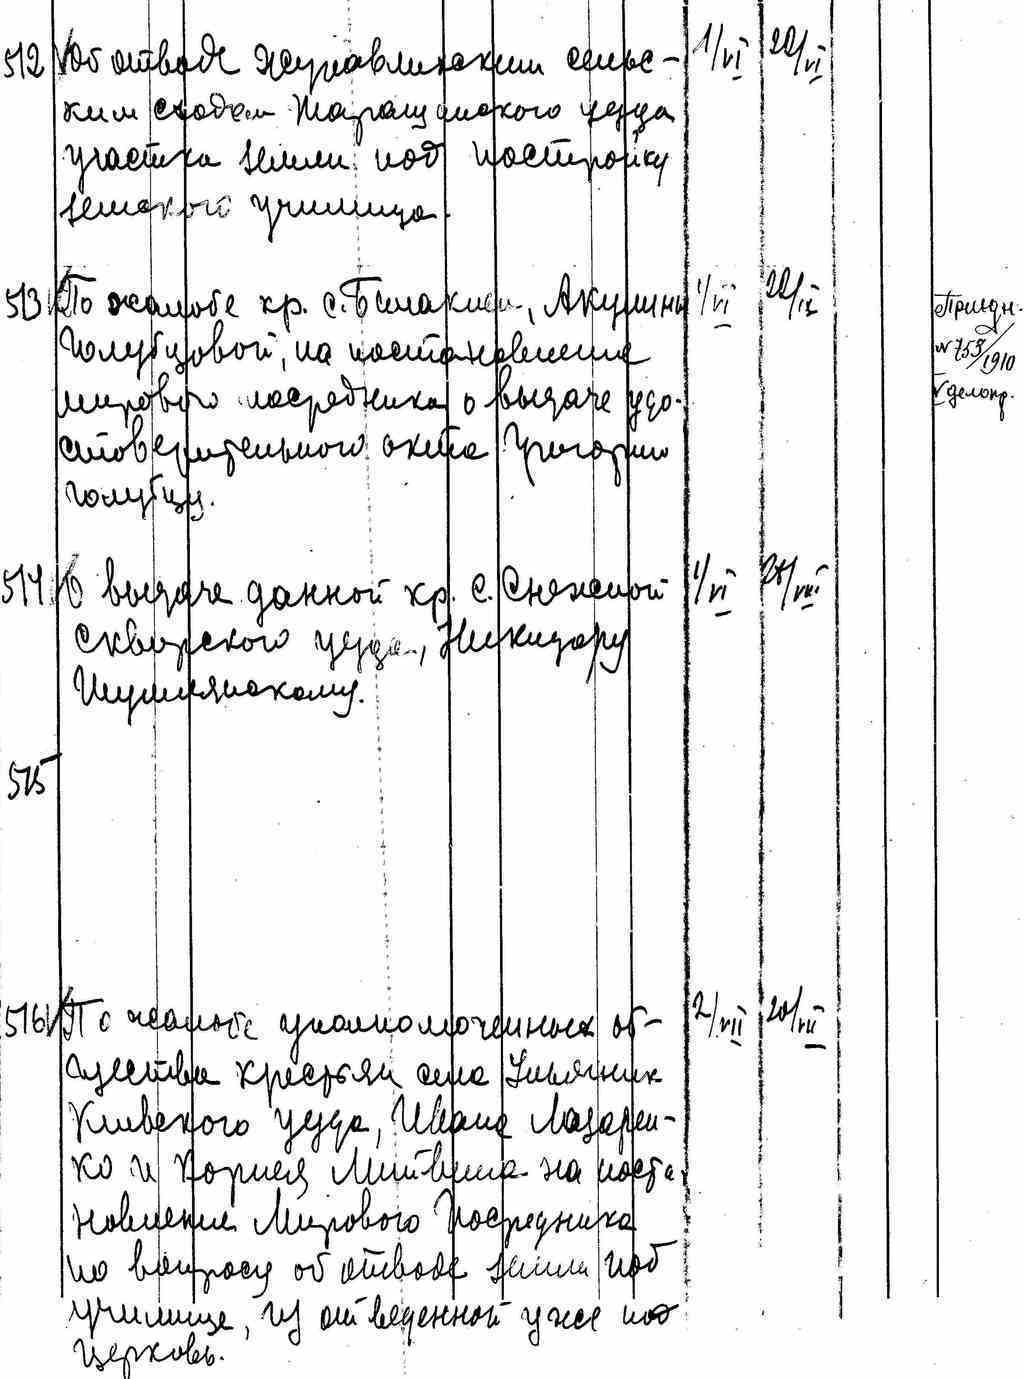 512 Об отводе Журавлинским сельс- 1/VI 22/VI
ким сходом Таращанского уезда
участка земли под постройку
земского училища.
513 По жалобе кр. с. Акулины 1/VI 22/IX Присдн.
Голубцовой, на постановление N 753/1910
мирового посредника о выдаче удо- делопр.
стоверительного акта Григорию
Голубцу.
514 О выдаче данной кр. с. Снежной 1/VI /VIII
Сквирского уезда, Никифору
Шумлянскому.
515
516 По жалобе уполномоченных об- 2/VII 20/VII
щества крестьян села
Киевского уезда, Ивана Лазарен-
ко и Корнея Литвина на поста
новление Мирового Посредника
по вопросу об отводе земли под
училище, из отведенной уже под
церковь.